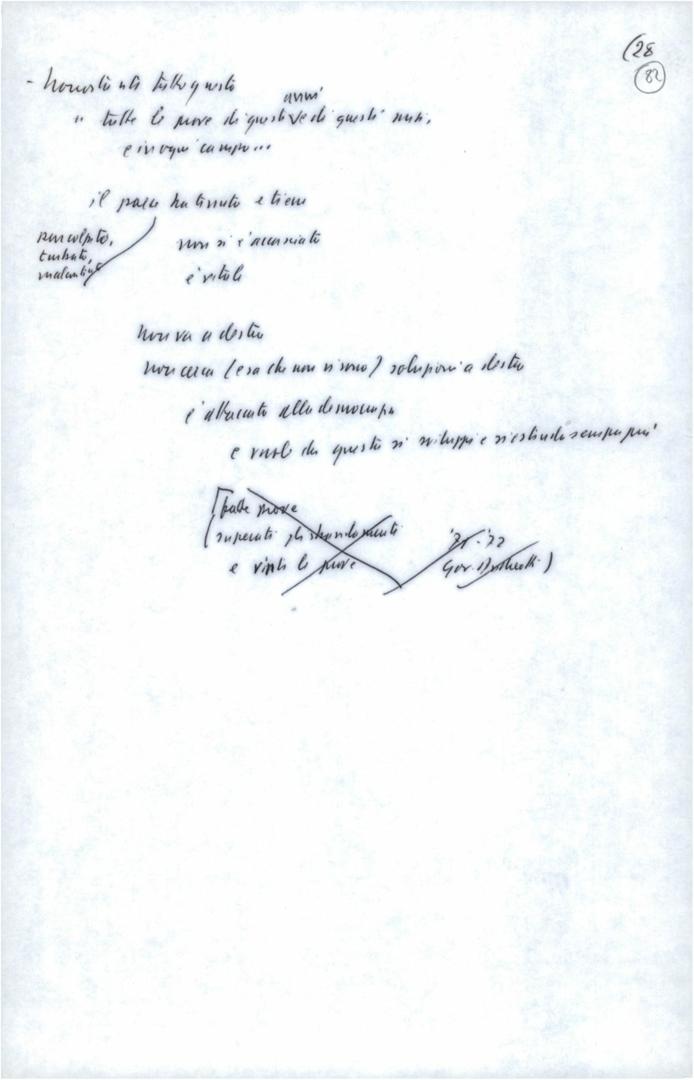 (28
82
- Nonostante tutto questo
anni
" tutte le prove di questi e di questi mesi,
e in ogni campo...
il paese ha tenuto e tiene
pur colpito,
turbato,
non si è accasciato
è vitale
non va a destra
non cerca (e sa che non vi sono) soluzioni a destra
è attaccato alla democrazia
e vuole che questa si sviluppi e si estenda sempre più
[ prove
(superati gli sbandamenti '71-'72
e vinte le prove Gov. Andreotti)